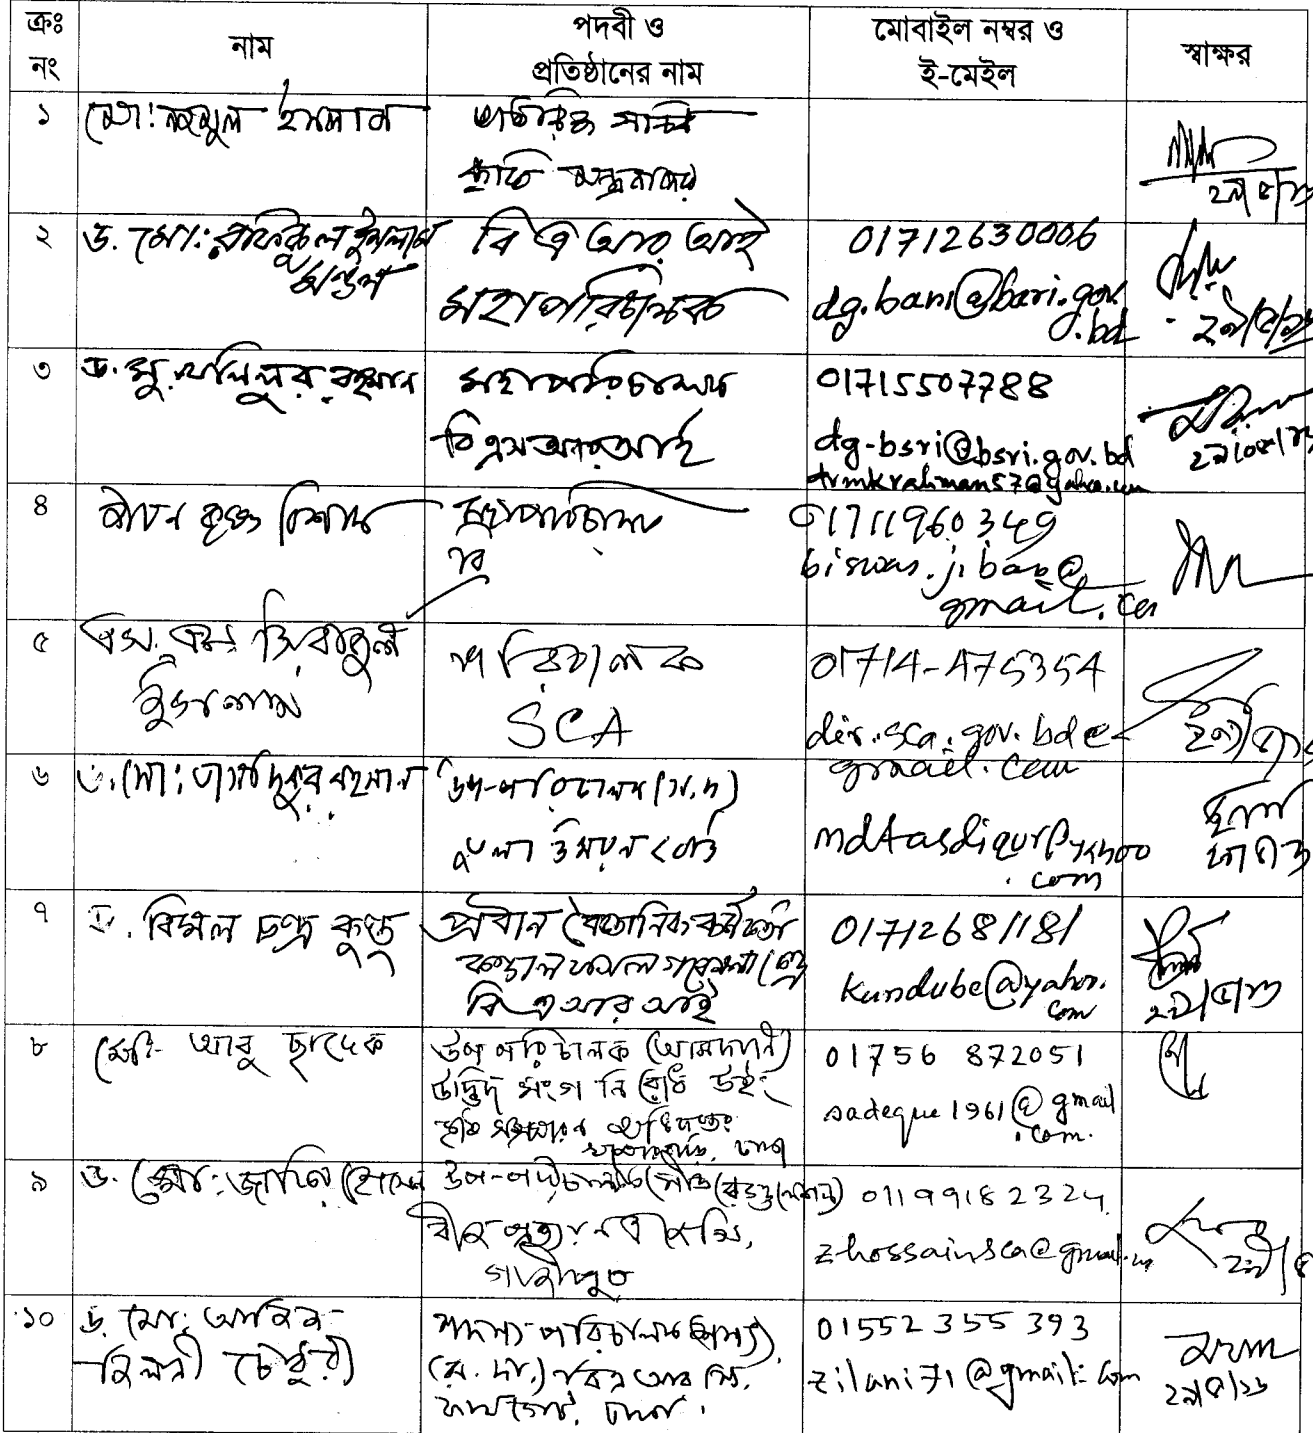 ক্রঃ নং
নাম
পদবী ও
প্রতিষ্ঠানের নাম
মোবাইল নম্বর ও
ই-মেইল
স্বাক্ষর
১
মো: ইসলাম
অতিরিক্ত সচিব
কৃষি মন্ত্রণালয়
২
ড. মো: রফিকুল ইসলাম
মণ্ডল
বি এ আর আই
মহাপরিচালক
01712630006
dg.bari@bari.gov
.bd
৩
ড. মু. খলিলুর রহমান
মহাপরিচালক
বিএসআরআই
01715507788
dg-bsri@bsri.gov.bd
drmkrahman57@yahoo.com
৪
জীবন কৃষ্ণ বিশ্বাস
মহাপরিচালক
ব্রি
01711960349
biswas.jiban@
gmail.com
৫
এস. এম. সিরাজুল
ইসলাম
পরিচালক
SCA
01714-475354
dir.sca.gov.bd@
gmail.com
৬
ড. মো: তাসদিকুর রহমান
উপ-পরিচালক (স.দ)
তুলা উন্নয়ন বোর্ড
mdtasdiqur@yahoo
.com
৭
ড. বিমল চন্দ্র কুণ্ডু
প্রধান বৈজ্ঞানিক কর্মকর্তা
কন্দাল ফসল গবেষণা কেন্দ্র
বি এ আর আই
01712681181
kundubc@yahoo.
com
৮
মো: আবু ছাদেক
উপ পরিচালক (আমদানি)
উদ্ভিদ সংগ নিরোধ উইং
কৃষি সম্প্রসারণ অধিদপ্তর
খামারবাড়ি, ঢাকা
01756 872051
sadeque1961@gmail
.com.
৯
ড. মো: জাকির হোসেন
উপ-পরিচালক
বীজ প্রত্যয়ন এজেন্সি,
গাজীপুর
01199182324
zhossainsca@gmail.com
১০
ড. মো:
জিলানী চৌধুরী
সদস্য পরিচালক (শস্য)
বিএআরসি.
ফার্মগেট, ঢাকা।
01552 355 393
zilani71@gmail.com